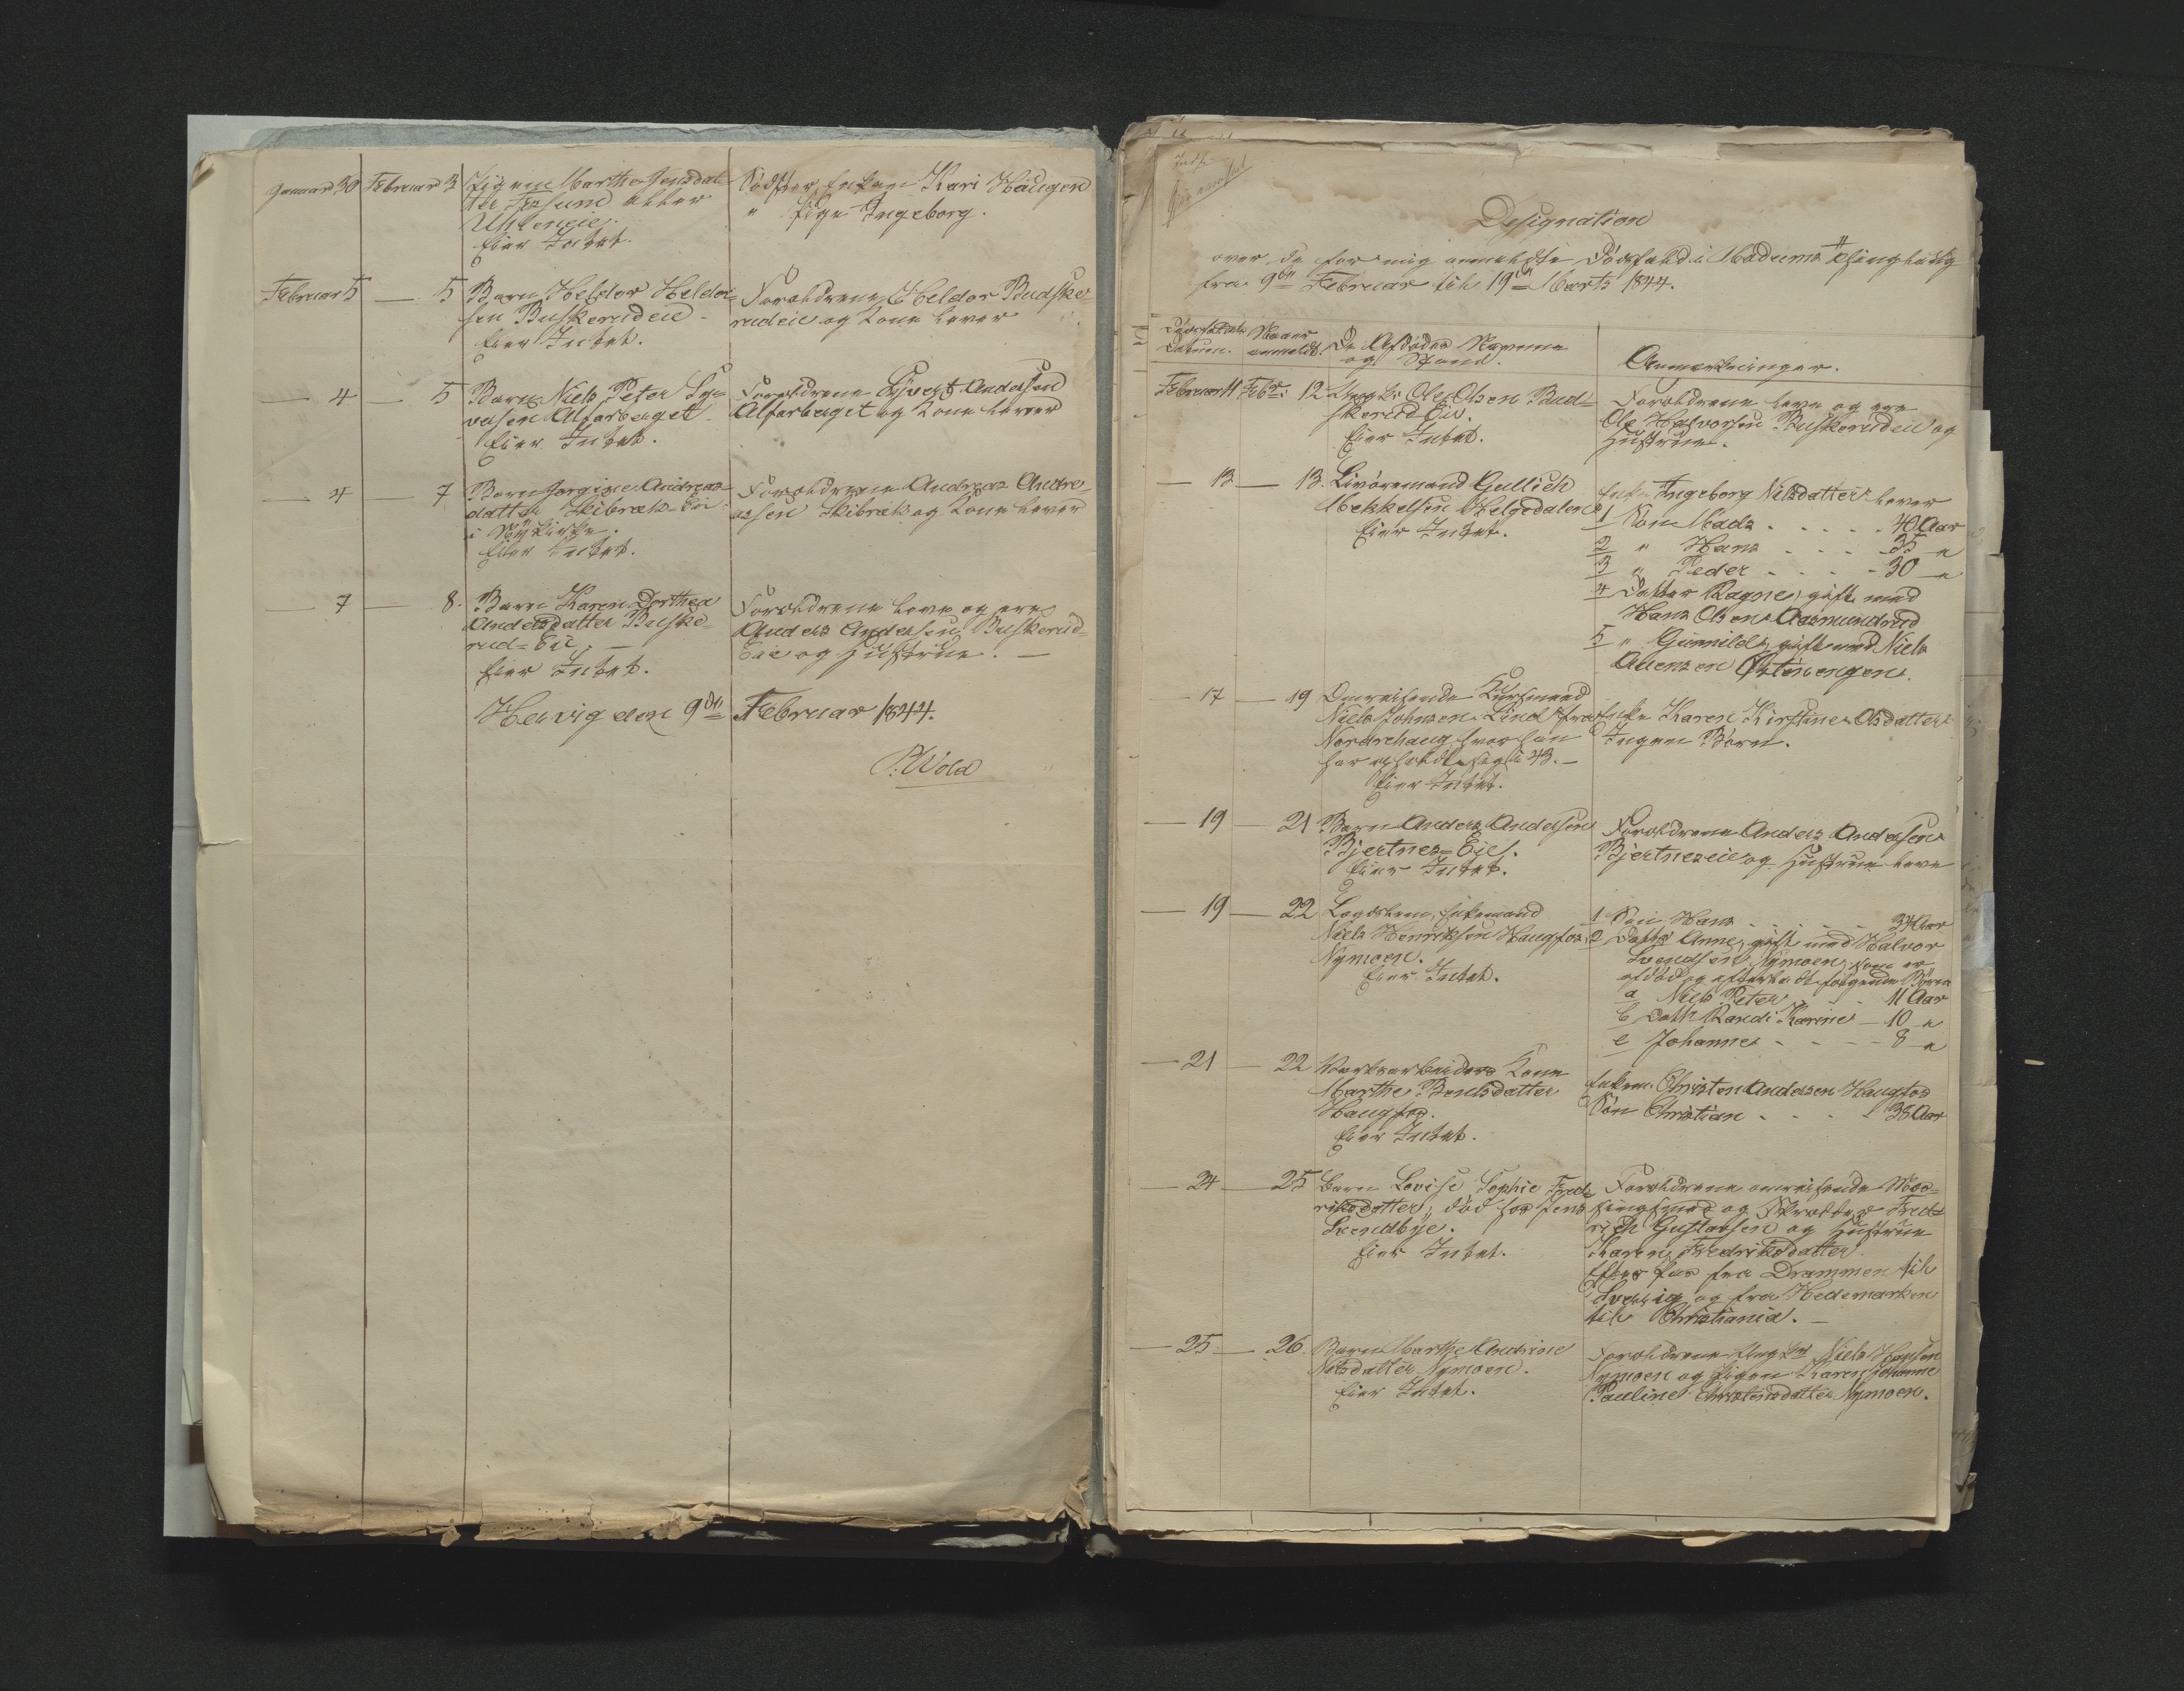 Januar 30 Februar 3 Pigen Marthe Jensdat-
ter Søsund eller
Uhlerneie.
Eier Intet.
Sødster Enken Kari Haugen
" Pige Ingeborg.
Februar 5 — 5 Barn Helder Helder-
sen Buskerudeie -
Eier Intet.
Forældrene Helder Buske-
rudeie og Kone lever
— 4 — 5 Barn Niels Peter Sy-
versen Alfarbaget
Eier Intet.
Forældrene Syvert Andersen
Alfarbaget og Kone lever
— 4 — 7 Barn Jorgine Andreas-
datter Skibræk-Eie
i Nykirke.
Eier Intet.
Forældrene Andreas Andre-
assen Skibræk og Kone lever
— 7 — 8. Barn Karen Dorthea
Andersdatter Buske-
rud-Eie, —
Eier Intet.
Forældrene leve og ere
Anders Andersen Buskerud-
Eie og Hustrue. —
Hervig den 9de Februar 1844.
P. Wold
Designation
over de for mig anmeldte Dødsfald i Modums Thinglaug
fra 9de Februar til 19de Marts 1844.
Dødsfaldets
Datum.
Naar
anmeldt.
De Afdødes Navne
og Stand.
Anmærkninger.
Februar 11 Febr. 12 Ungkl. Ole Olsen Bud-
skerud Eie.
Eier Intet.
Forældrene leve og ere
Ole Halvorsen Buskerudeie og
Hustrue.
— 13 — 13. Livøremand Gullich
Mekkelsen Helgedalen
Eier Intet.
Enke Ingeborg Nilsdatter lever
1 Søn Mads . . . . . 40 Aar
2 " Hans . . . . 35 "
3 " Peder . . . . 30 "
4 Datter Ragne, gift med
Hans Olsen Aasmundrud
5 " Gunnild, gift med Niels
Auensen Østenengen.
— 17 — 19 Omreisende
Niels Johnsen Lind fra
Nordrehaug hvor han
har opholdt sig i 43. —
Eier Intet.
Enke Karen Kirstine Olsdatter
Ingen Børn.
— 19 — 21 Barn Anders Andersen
Bjertnes-Eie.
Eier Intet.
Forældrene Anders Andersen
Bjertneseie og Hustrue leve
— 19 — 22 Lægdslem, Enkemand
Niels Henriksen Haugfos,
Nymoen.
Eier Intet.
1 Søn Hans . . . . 34 Aar
2 Datter Anne, gift med Halvor
Svendsen Nymoen, som er
afdød og efterladt følgende Børn
a Niels Peter . . . 11 Aar
b Datt. Randi Karine — 10 "
c Johanne . . . — 8 "
— 21 — 22 Værksarbeiders Kone
Marthe Bentsdatter
Haugfos.
Eier Intet.
Enkem. Christen Andersen Haugfos
Søn Christian . . . . 38 Aar
— 24 — 25 Barn Lovise Sophie Fred-
riksdatter, død hos Jens
Svendbye.
Eier Intet.
Forældrene omreisende Mes-
singsmed og Skrædder Fred-
rich Gustavsen og Hustrue
Karen Fredriksdatter.
Efter Pas fra Drammen til
Sverrig og fra Hedemarken
til Christiania. —
— 25 — 26. Barn Marthe Andrine
Nilsdatter Nymoen.
Eier Intet.
Forældrene Ungkl. Niels Hansen
Nymoen og Pigen Karen Johanne
Pauline Christensdatter Nymoen.